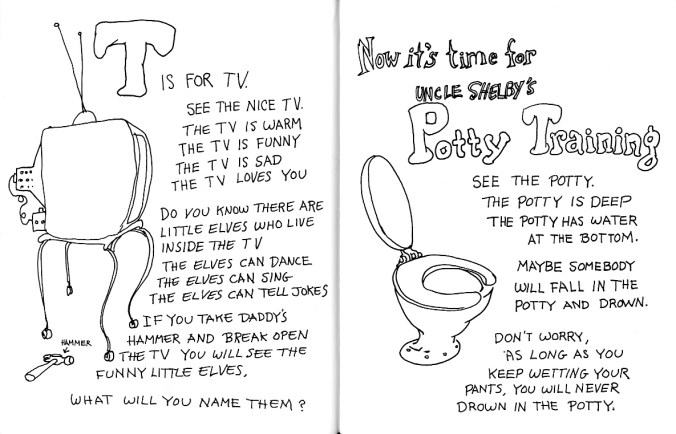 T IS FOR TV.
SEE THE NICE TV.
THE TV IS WARM
THE TV IS FUNNY
THE TV IS SAD
THE TV LOVES YOU
DO YOU KNOW THERE ARE
LITTLE ELVES WHO LIVE
INSIDE THE TV
THE ELVES CAN DANCE
THE ELVES CAN SING
THE ELVES CAN TELL JOKES
IF YOU TAKE DADDY'S
HAMMER AND BREAK OPEN
THE TV YOU WILL SEE THE
FUNNY LITTLE ELVES.
HAMMER
WHAT WILL YOU NAME THEM?
Now it's time for
UNCLE SHELBY'S
Potty Training
SEE THE POTTY.
THE POTTY IS DEEP
THE POTTY HAS WATER
AT THE BOTTOM.
MAYBE SOMEBODY
WILL FALL IN THE
POTTY AND DROWN.
DON'T WORRY,
AS LONG AS YOU
KEEP WETTING YOUR
PANTS, YOU WILL NEVER
DROWN IN THE POTTY.